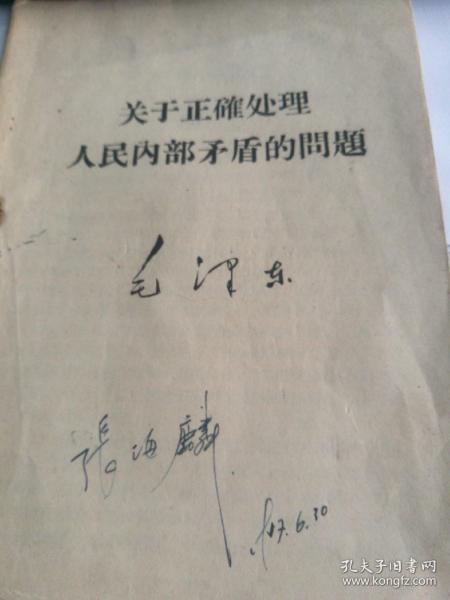 关于正確处理
人民内部矛盾的問題
毛泽东
張海麟
57.6.30
孔夫子旧书网
www.kongfz.com